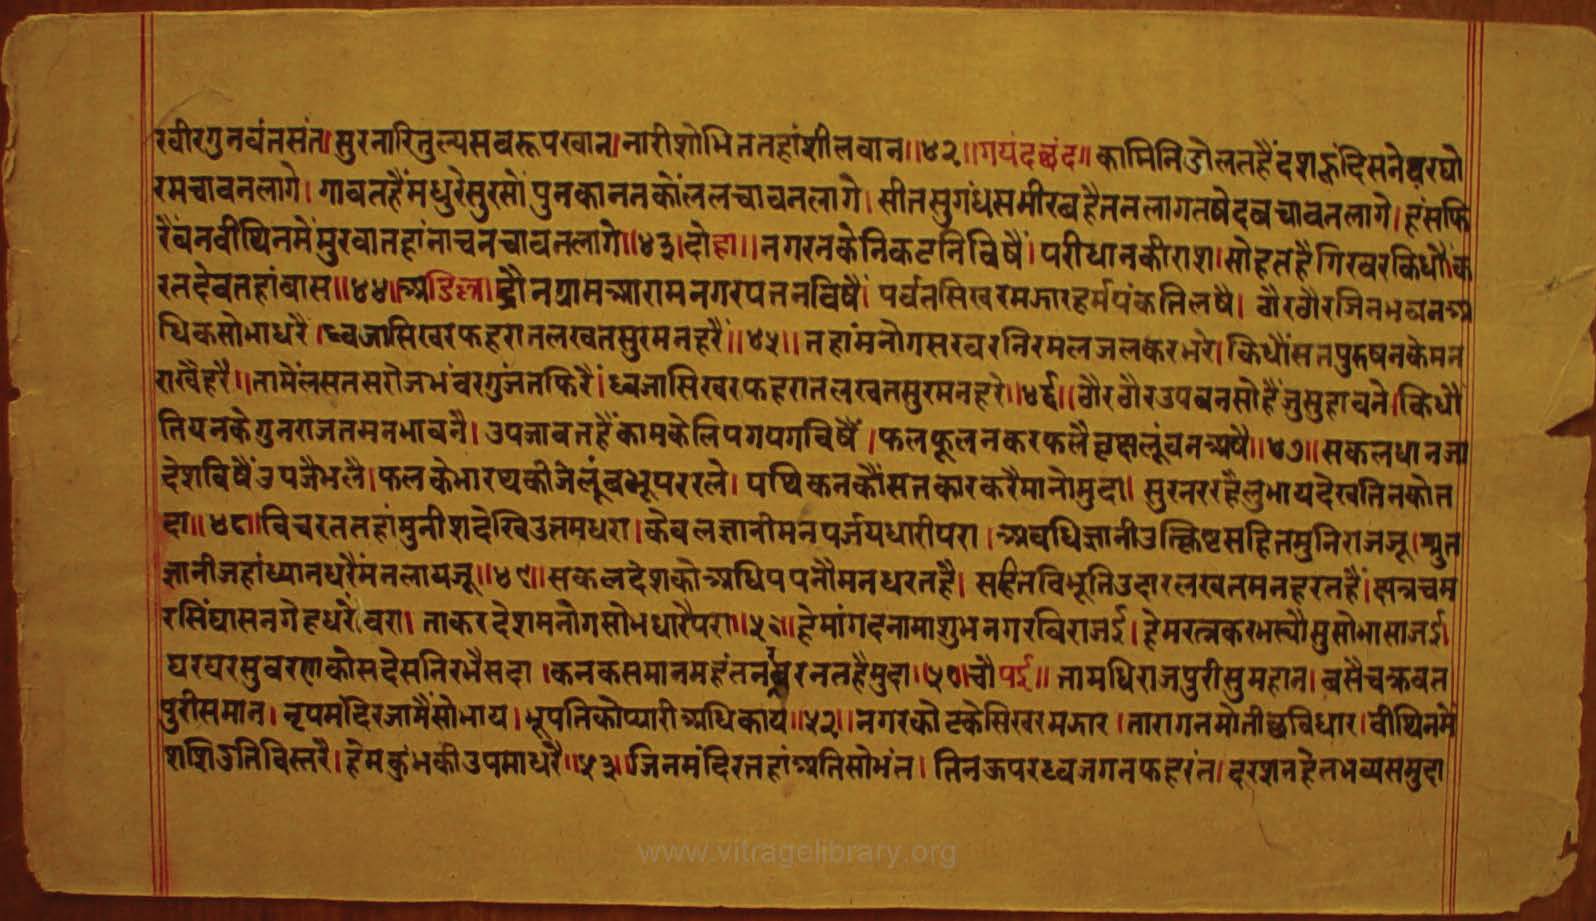 रवीरगुनवंतसंत।सुरनारितुल्यसबरूपखान।नारीशोभिततहांशीलवान॥४२॥गयंदछंद॥कामिनिडोलतहैंदशहूंदिसनेवरघो
रमचावनलागे।गावतहैंमधुरेसुरसोंपुनकाननकोंललचावनलागे।सीतसुगंधसमीरबहैतनलागतषेदबचावनलागे।हंसफि
रैंवनवीथिनमेंसुरवातहांनाचनचावनलागे॥४३।दोहा॥नगरनकेनिकटनिविषैं।परीधानकीराश।सोहतहैगिरवरकिधौंक
रतदेवतहांवास॥४४॥अडिल्ल।द्रौनग्रामआरामनगरपतनविषैं।पर्वतसिखरमझारहर्मपंकतिलषै।ठौरठौरजिनभवनअ
धिकसोभाधरै।ध्वजासिखरफहरातलखतसुरमनहरैं॥४५॥तहांमनोगसरवरनिरमलजलकरभरे।किधौंसतपुरुषनकेमन
राखैहरै॥तामेंलसतसरोजभंवरगुंजतफिरैं।ध्वजासिखरफहरातलखतसुरमनहरे॥४६॥ठौरठौरउपवनसोहैंजुसुहावने।किधौ
तियनकेगुनराजतमनभावनै।उपजावतहैंकामकेलिपगपगविषैं।फलफूलनकरफलैवृक्षलूंवतअषै॥४७॥सकलधानजा
देशविषैंउपजैभलै।फलकेभारथकीजेलूंबभूपररले।पथिकनकौंसतकारकरैमानोमुदा।सुरनररहैलुभायदेखतिनकोत
दा॥४८॥विचरततहांमुनीशदेखिउतमधरा।केवलज्ञानीमनपर्जयधारीपरा।अवधिज्ञानीउत्किष्टसहितमुनिराजजू।श्रुत
ज्ञानीजहांध्यानधरैंमनलायजू॥४९॥सकलदेशकोअधिपपनौमनधरतहै।सहितविभूतिउदारलखतमनहरतहैं।क्षत्रचम
रसिंघासनगेहधरेंवरा।ताकरदेशमनोगसोभधारैपरा॥५१॥हेमांगदनामाशुभनगरविराजई।हेमरत्नकरभस्यौसुसोभासाजई।
घरघरसुवरणकोसदेसनिरभैसदा।कनकसमानमहंतनवरनतहैमुदा॥५०॥चौपई॥तामधिराजपुरीसुमहान।बसैचक्रवत
पुरीसमान।नृपमंदिरजामैंसोभाय।भूपतिकोप्यारीअधिकाय॥५२॥नगरकोटकेसिखरमझार।तारागनमोतीछविधार।वीथिनमें
शशिउतिविस्तरै।हेमकुंभकीउपमाधरै॥५३॥जिनमंदिरतहांअतिसोभंत।तिनऊपरध्वजगनफहरंत।दरशनहेतभव्यसमुदा
www.vitragelibrary.org